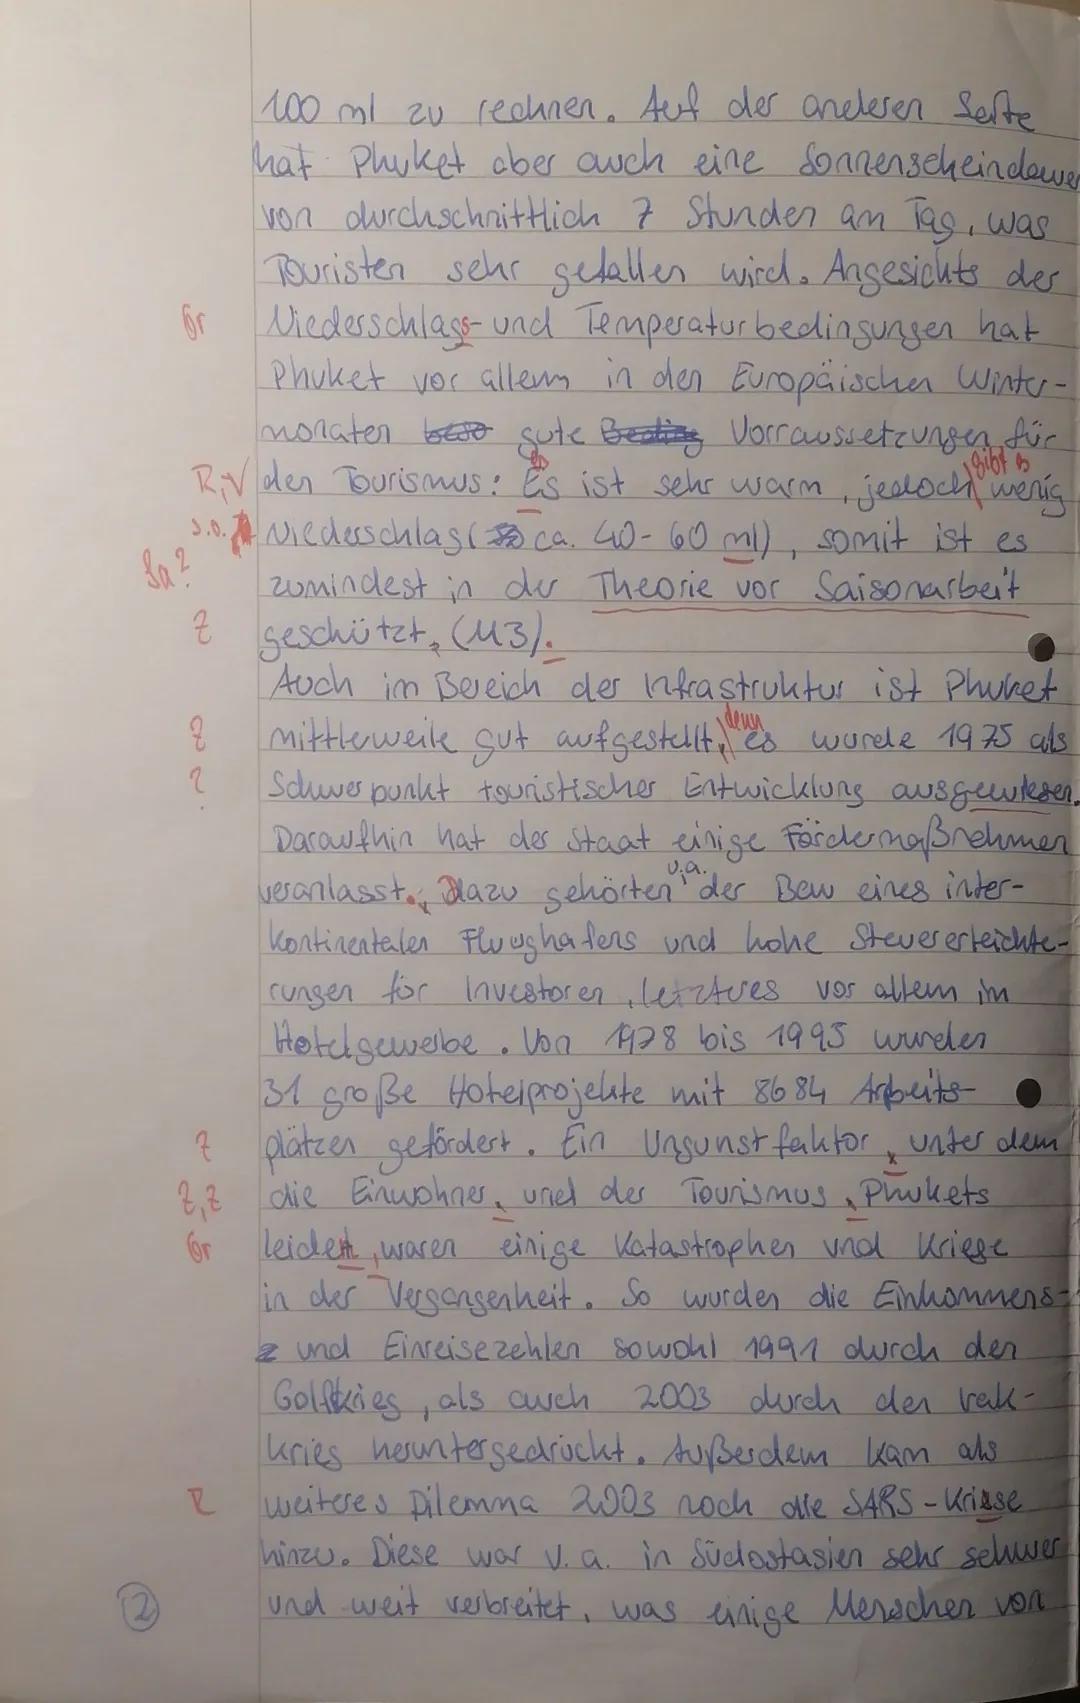 100 ml zu rechnen. Auf der anderen Seite
hat Phuket aber auch eine Sonnenscheindauer
von durchschnittlich 7 Stunden am Tag, was
Touristen sehr gefallen wird. Angesichts der
Gr Niederschlags- und Temperaturbedingungen hat
Phuket vor allem in den Europäischen Winter-
monaten beso gute Beding Vorraussetzungen für
es gibt es
R, V den Tourismus: Es ist sehr warm, jedoch wenig
s.o. Niederschlag (ca. 40-60 ml), somit ist es
Sa? zumindest in der Theorie vor Saisonarbeit
Z geschützt. (M3).
Auch im Bereich der Infrastruktur ist Phuket
denn
Z mittlerweile gut aufgestellt, es wurde 1975 als
? Schwerpunkt touristischer Entwicklung ausgewiesen.
Daraufhin hat der Staat einige Fördermaßnehmen
u.a.
veranlasst. Dazu gehörten der Bau eines inter-
kontinentalen Flughafens und hohe Steuererleichte-
rungen für Investoren, letzteres vor allem im
Hotelgewerbe. Von 1978 bis 1995 wurden
31 große Hotelprojekte mit 8684 Arbeits-
Z plätzen gefördert. Ein Ungunstfaktor, unter dem
Z, Z die Einwohner, und der Tourismus, Phukets
Gr leiden, waren einige Katastrophen und Kriege
in der Vergangenheit. So wurden die Einkommens-
und Einreisezahlen sowohl 1991 durch den
Golfkrieg, als auch 2003 durch den Irak-
krieg heruntergedrückt. Außerdem kam als
R weiteres Dilemma 2003 noch die SARS-Kriese
hinzu. Diese war v.a. in Südostasien sehr schwer
2 und weit verbreitet, was einige Menschen von